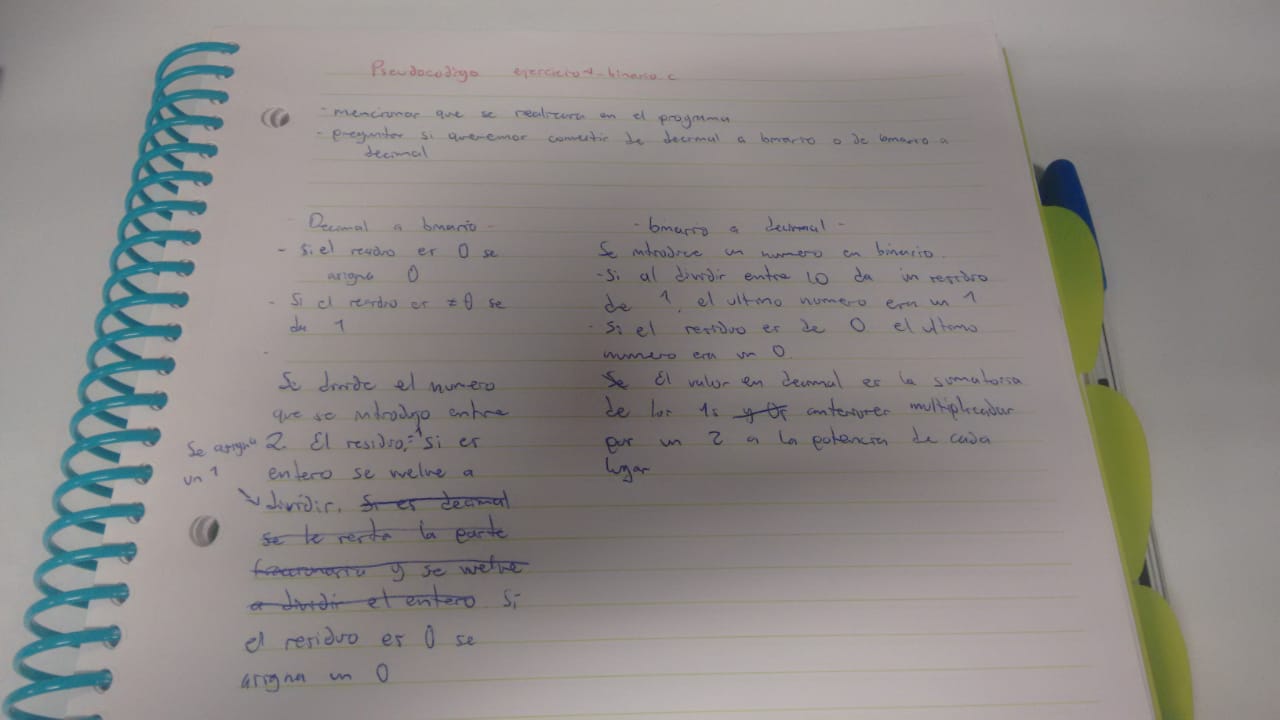 Pseudocodigo ejercicio4-binario.c
- mencionar que se realizara en el programa
- preguntar si queremos convertir de decimal a binario o de binario a
decimal
- Decimal a binario -
- Si el residuo es 0 se
asigna 0
- Si el residuo es ≠ 0 se
da 1
-
Se divide el numero
que se introdujo entre
2. El residuo, =1 si es
Se asigna
un 1
entero se vuelve a
dividir. Si es decimal
se le resta la parte
fraccionaria y se vuelve
a dividir el entero Si
el residuo es 0 se
asigna un 0
- binario a decimal -
Se introduce un numero en binario.
- Si al dividir entre 10 da un residuo
de 1, el ultimo numero era un 1
- Si el residuo es de 0 el ultimo
numero era un 0.
Se El valor en decimal es la sumatoria
de los 1s y 0s anteriores multiplicador
por un 2 a la potencia de cada
lugar